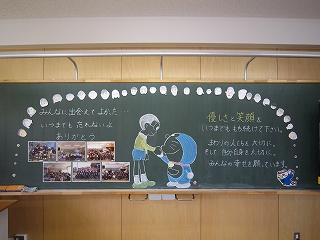 みんなに出会えてよかった…
いつまでも忘れないよ
ありがとう
優しさと笑顔を
いつまでももち続けて下さい。
まわりの人たちを大切に、
そして自分自身を大切に。
みんなの幸せを願っています。